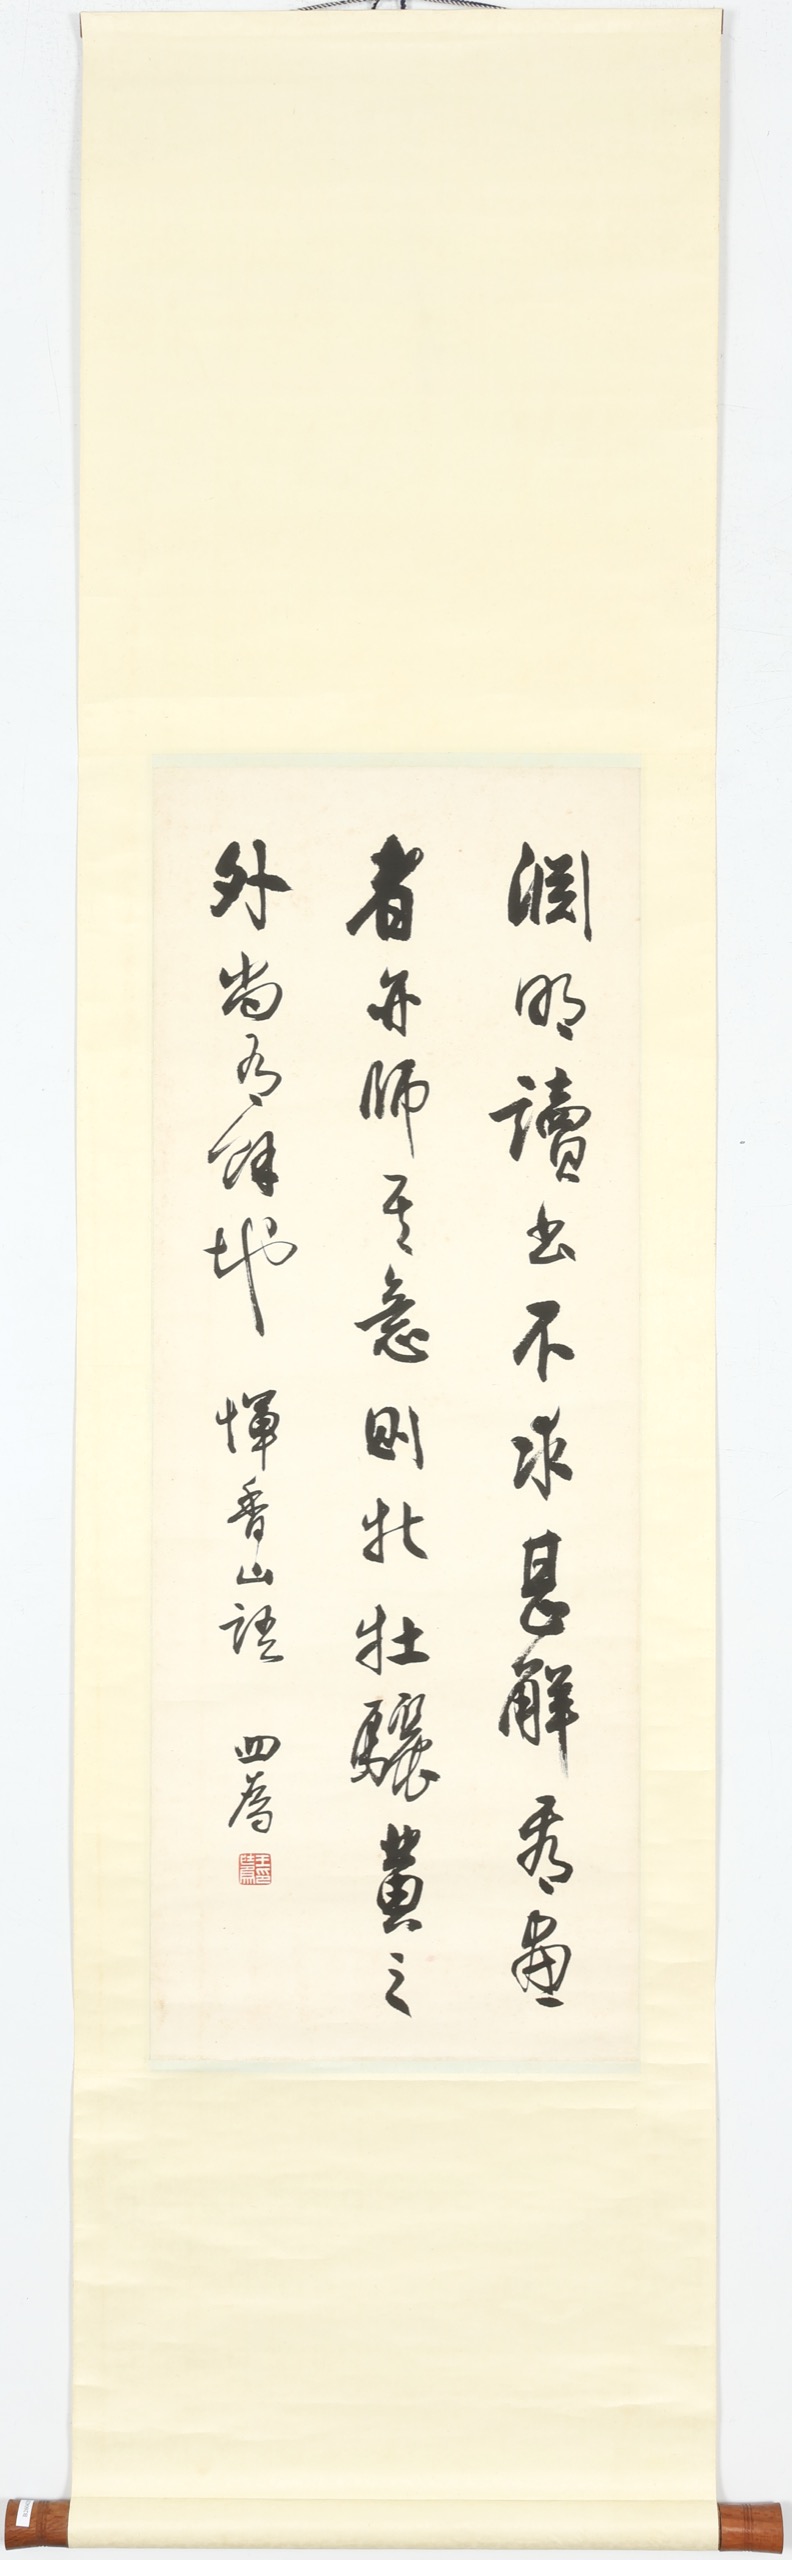 淵明讀書不求甚解看畫
者并師其意則牝牡驪黃之
外尚有餘地 惲香山語 四為